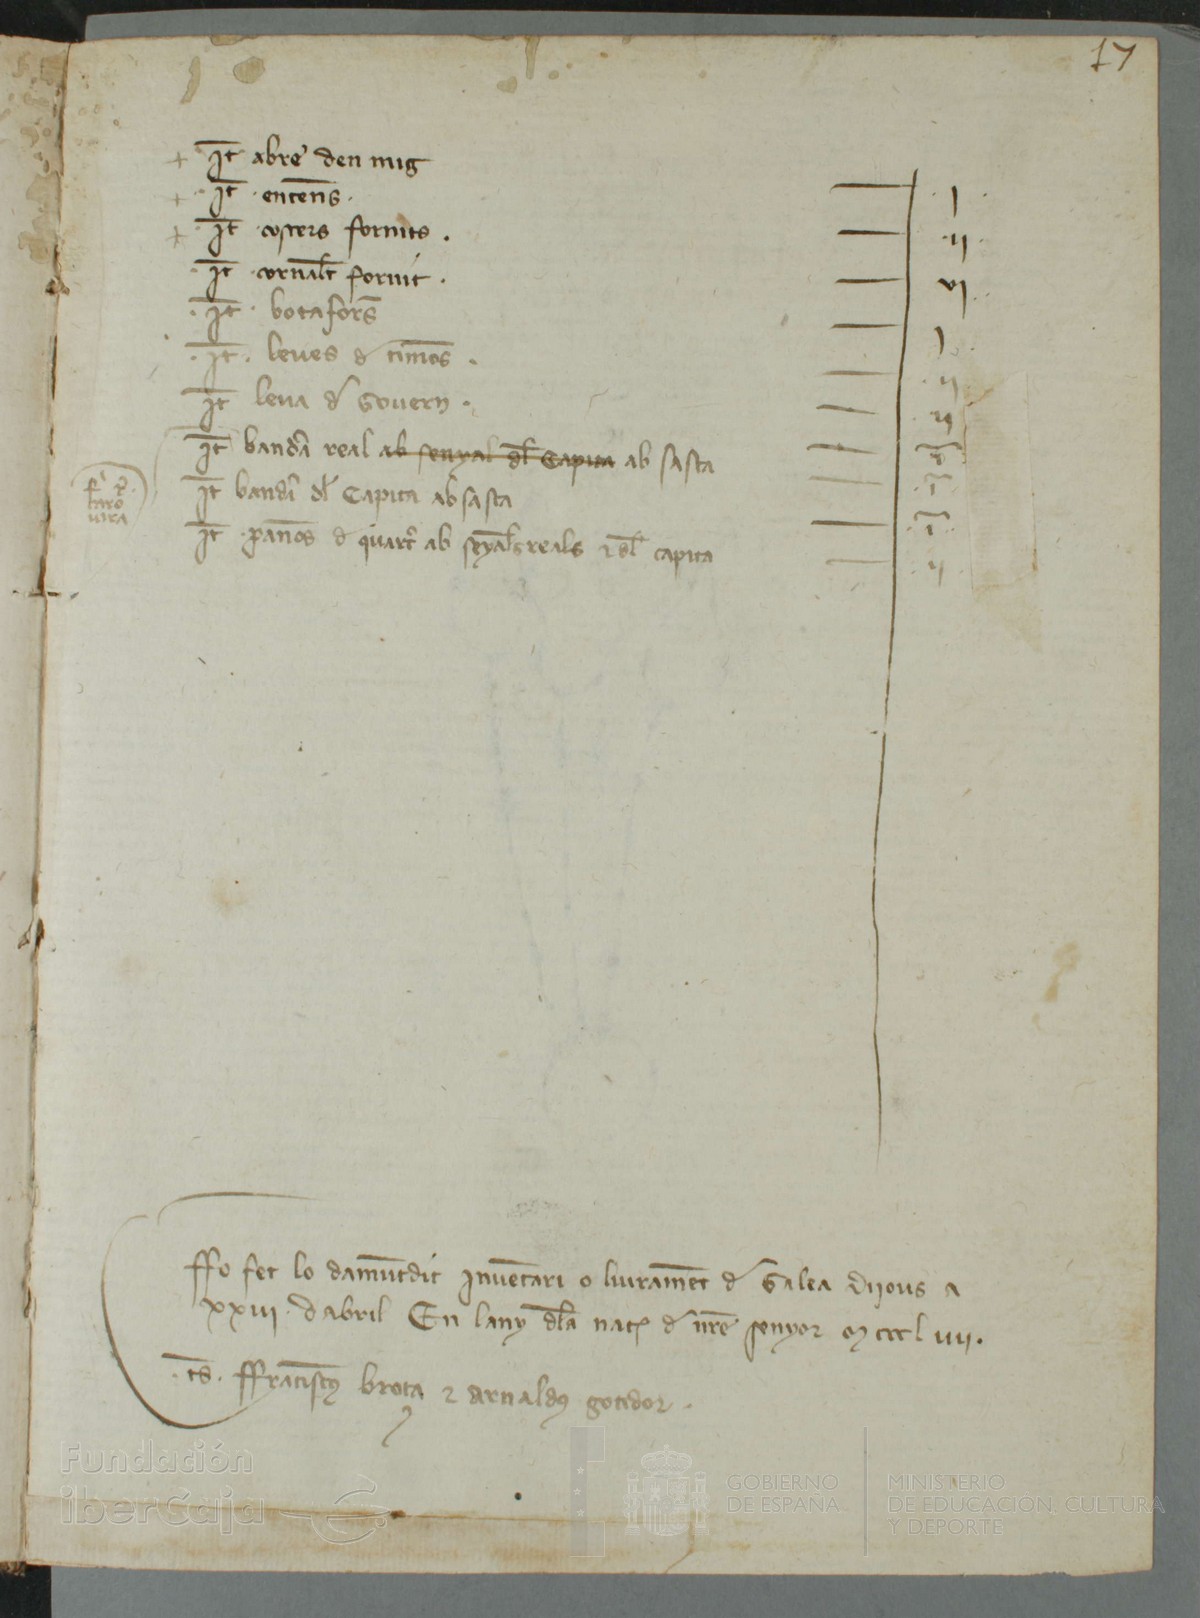 17
+ It abre den mig · I ·
+ · It · entens · · II ·
+ · It · costers fornits · · VI ·
· It · cornalt fornit · I
· It · botafors · II
· It · leves d timos · III
It lena d Govern · I
It banda real ab senyal dl Capita ab sasta · I ·
It bandi dl Capita ab sasta · I ·
It · panos d quart ab seyals reals ⁊ dl capita · II ·
taro
vira
ffo fet lo damuntdit Inventari o livrament d Galea dijous a
XXIII · dabril En lany dla nat d nre senyor M CCC L IIII ·
· ts · ffranciscus brota ⁊ arnaldus gotidor ·
Fundación
iberCaja
GOBIERNO
DE ESPAÑA
MINISTERIO
DE EDUCACIÓN, CULTURA
Y DEPORTE